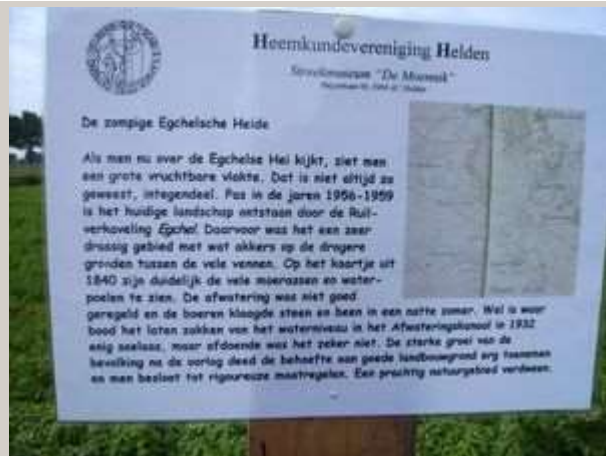 Heemkundevereniging Helden
Streekmuseum "De Moennik"
De zompige Egchelsche Heide
Als men nu over de Egchelse Hei kijkt, ziet men
een grote vruchtbare vlakte. Dat is niet altijd zo
geweest, integendeel. Pas in de jaren 1956-1959
is het huidige landschap ontstaan door de Ruil-
verkaveling Egchel. Daarvoor was het een zeer
drassig gebied met wat akkers op de drogere
gronden tussen de vele vennen. Op het kaartje uit
1840 zijn duidelijk de vele moerassen en water-
poelen te zien. De afwatering was niet goed
geregeld en de boeren klaagde steen en been in een natte zomer. Wel is waar
bood het laten zakken van het waterniveau in het Afwateringskanaal in 1932
enig soelaas, maar afdoende was het zeker niet. De sterke groei van de
bevolking na de oorlog deed de behoefte aan goede landbouwgrond erg toenemen
en men besloot tot rigoureuze maatregelen. Een prachtig natuurgebied verdween.